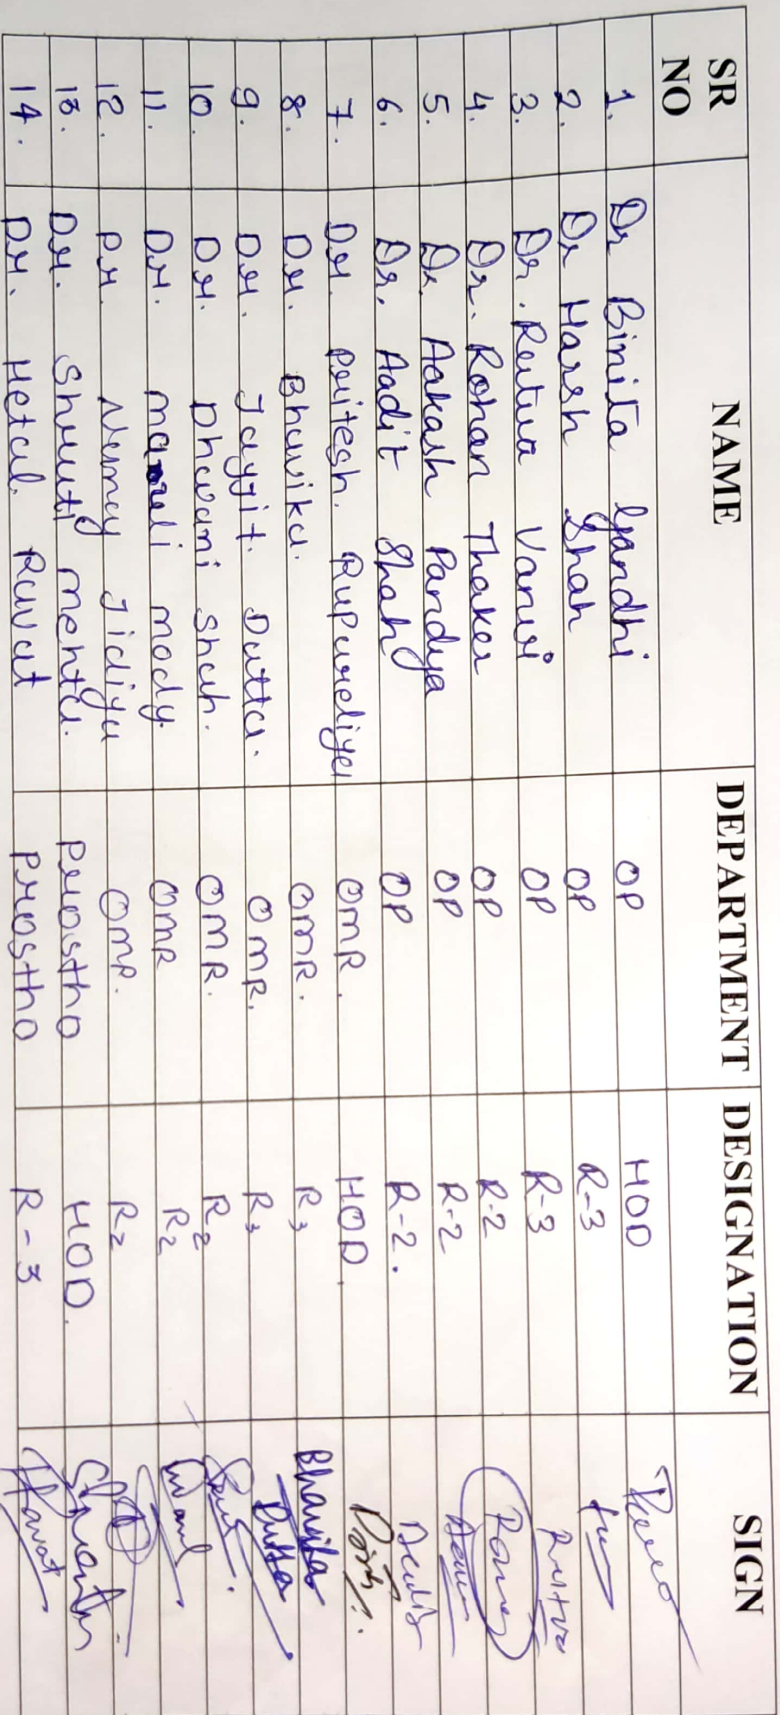 SR NO NAME DEPARTMENT DESIGNATION SIGN
1. Dr Binita Gandhi OP HOD
2. Dr Harsh Shah OP R-3
3. Dr. Rutva Vanvi OP R-3 Rutva
4. Dr. Rohan Thaker OP R-2
5. Dr. Aakash Pandya OP R-2
6. Dr. Aadit Shah OP R-2.
7. Dr. Pritesh. Rupareliya OMR. HOD.
8. Dr. Bhavika. OMR. R3 Bhavika
9. Dr. Jayjit. Dutta. OMR. R3 Dutta
10. Dr. Dhwani Shah. OMR. R2
11. Dr. Marueli mody OMR R2
12. Dr. Jidiya OMR. R2
13. Dr. Shruti mehta. Prostho HOD.
14. Dr. Hetal. Ravat Prostho R-3 Havat